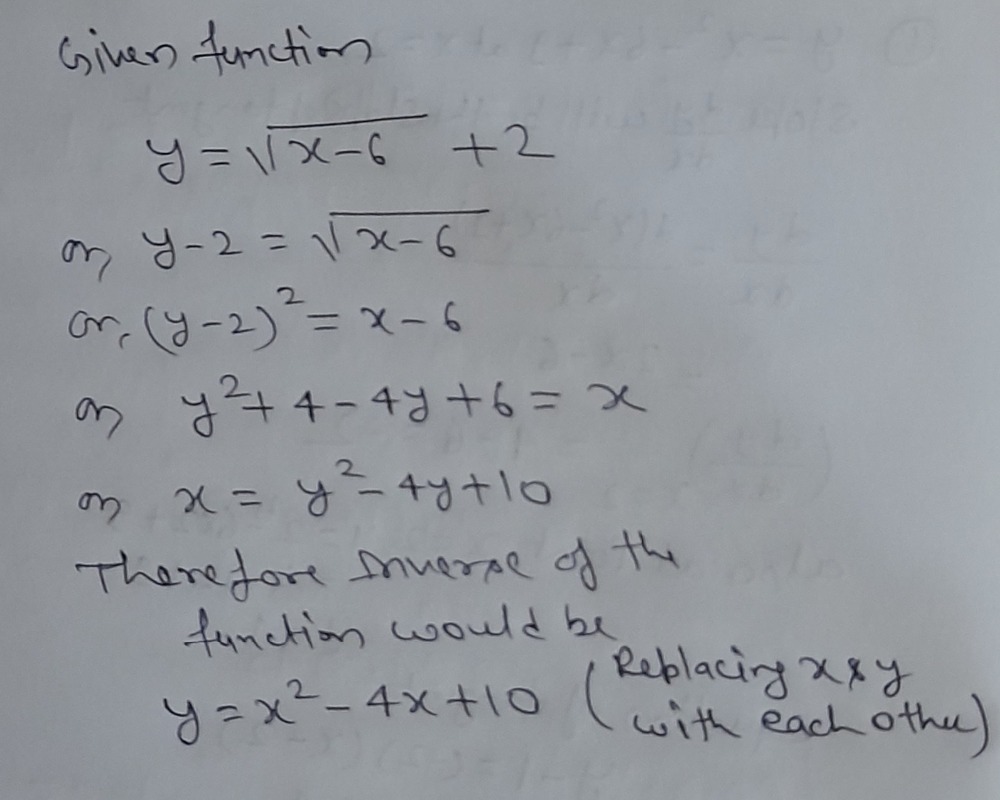 Given function
y = √x-6 + 2
or, y-2 = √x-6
or, (y-2)² = x-6
or, y²+4-4y+6 = x
or, x = y²-4y+10
Therefore Inverse of the
function would be
y = x²-4x+10 (Replacing x & y
with each other)